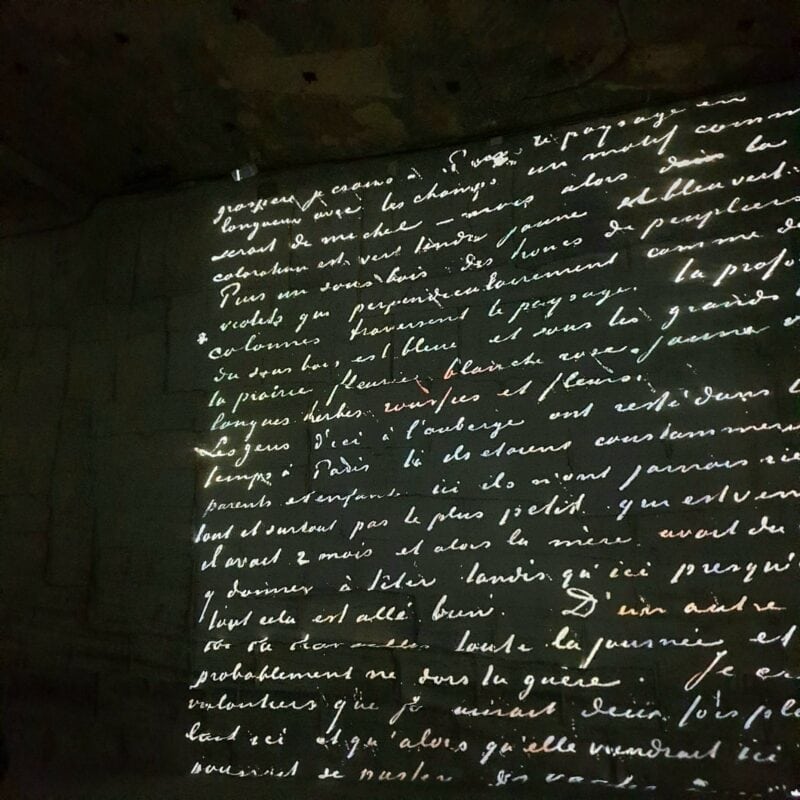 le paysage en
je crains à un motif comm
longueur avec les champs
serait de michel – mais alors dans la
coloration est vert tendre jaune et bleu vert.
Puis un sous bois des troncs de peupliers
violets qui perpendiculairement comme de
colonnes traversent le paysage. la profo
du sous bois est bleue et sous les grands
la prairie fleurie blanche rose jaune v
longues herbes rousses et fleurs.
Les gens d'ici à l'auberge ont resté dans l
temps à Paris là ils etaient constammen
parents et enfants ici ils n'ont jamais rie
tout et surtout pas le plus petit qui est ven
il avait 2 mois et alors la mère avait du
y donner à téter tandis qu'ici presqu'
tout cela est allé bien. D'un autre
toute la journée et
probablement ne dors la guère. Je cr
volontiers que je aurait deux fois pl
lait ici et qu'alors qu'elle viendrait ici
pourrait se